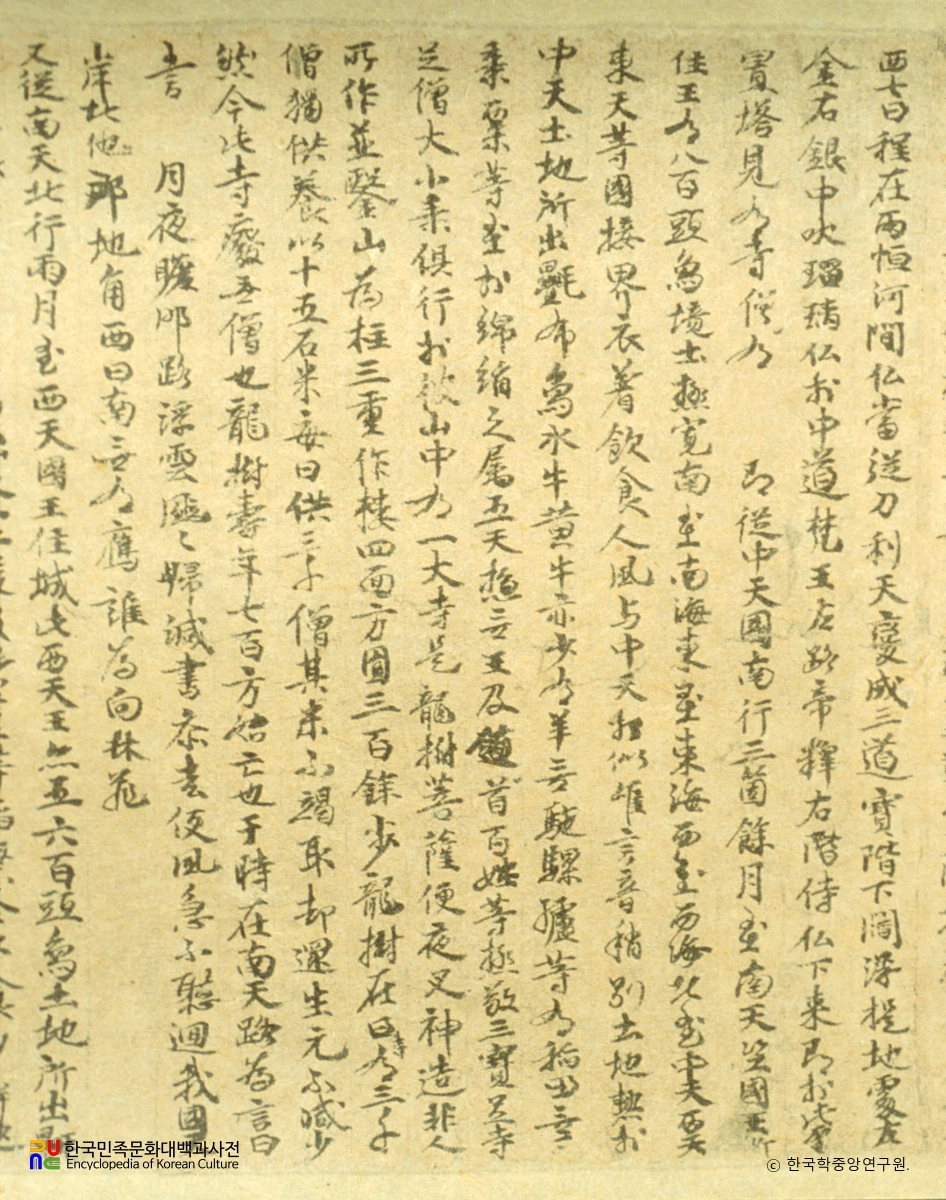 西七日程在兩恒河間仏當従刀利天變成三道寶階下閻浮提地處左
金右銀中吠瑠璃仏於中道梵王左路帝釋右階侍仏下来即於此處
置塔見有寺有僧 即従中天國南行三箇餘月至南天竺國王所
住王有八百頭象境土極寛南至南海東至東海西至西海北至中天西
東天等國接界衣著飲食人風与中天相似唯言音稍別土地熱於
中天土地所出㲲布象水牛黄牛亦少有羊無駝騾驢等有稲田無
黍粟等至於綿絹之属五天惣無王及領首百姓等極敬三寶足寺
足僧大小乗俱行於彼山中有一大寺是龍樹菩薩便夜叉神造非人
所作並鑿山為柱三重作樓四面方圓三百餘歩龍樹在日寺有三千
僧獨供養以十五石米毎日供三千僧其米不竭取却還生元不減少
然今此寺廢無僧也龍樹壽年七百方始亡也于時在南天路為言曰
言 月夜瞻郷路浮雲颯々歸緘書忝去便風急不聽迴我國
岸北他邦地角西日南無有鴈誰為向林飛
又従南天北行兩月至西天國王住城此西天王亦五六百頭象土地所出
한국민족문화대백과사전
Encyclopedia of Korean Culture
ⓒ 한국학중앙연구원.